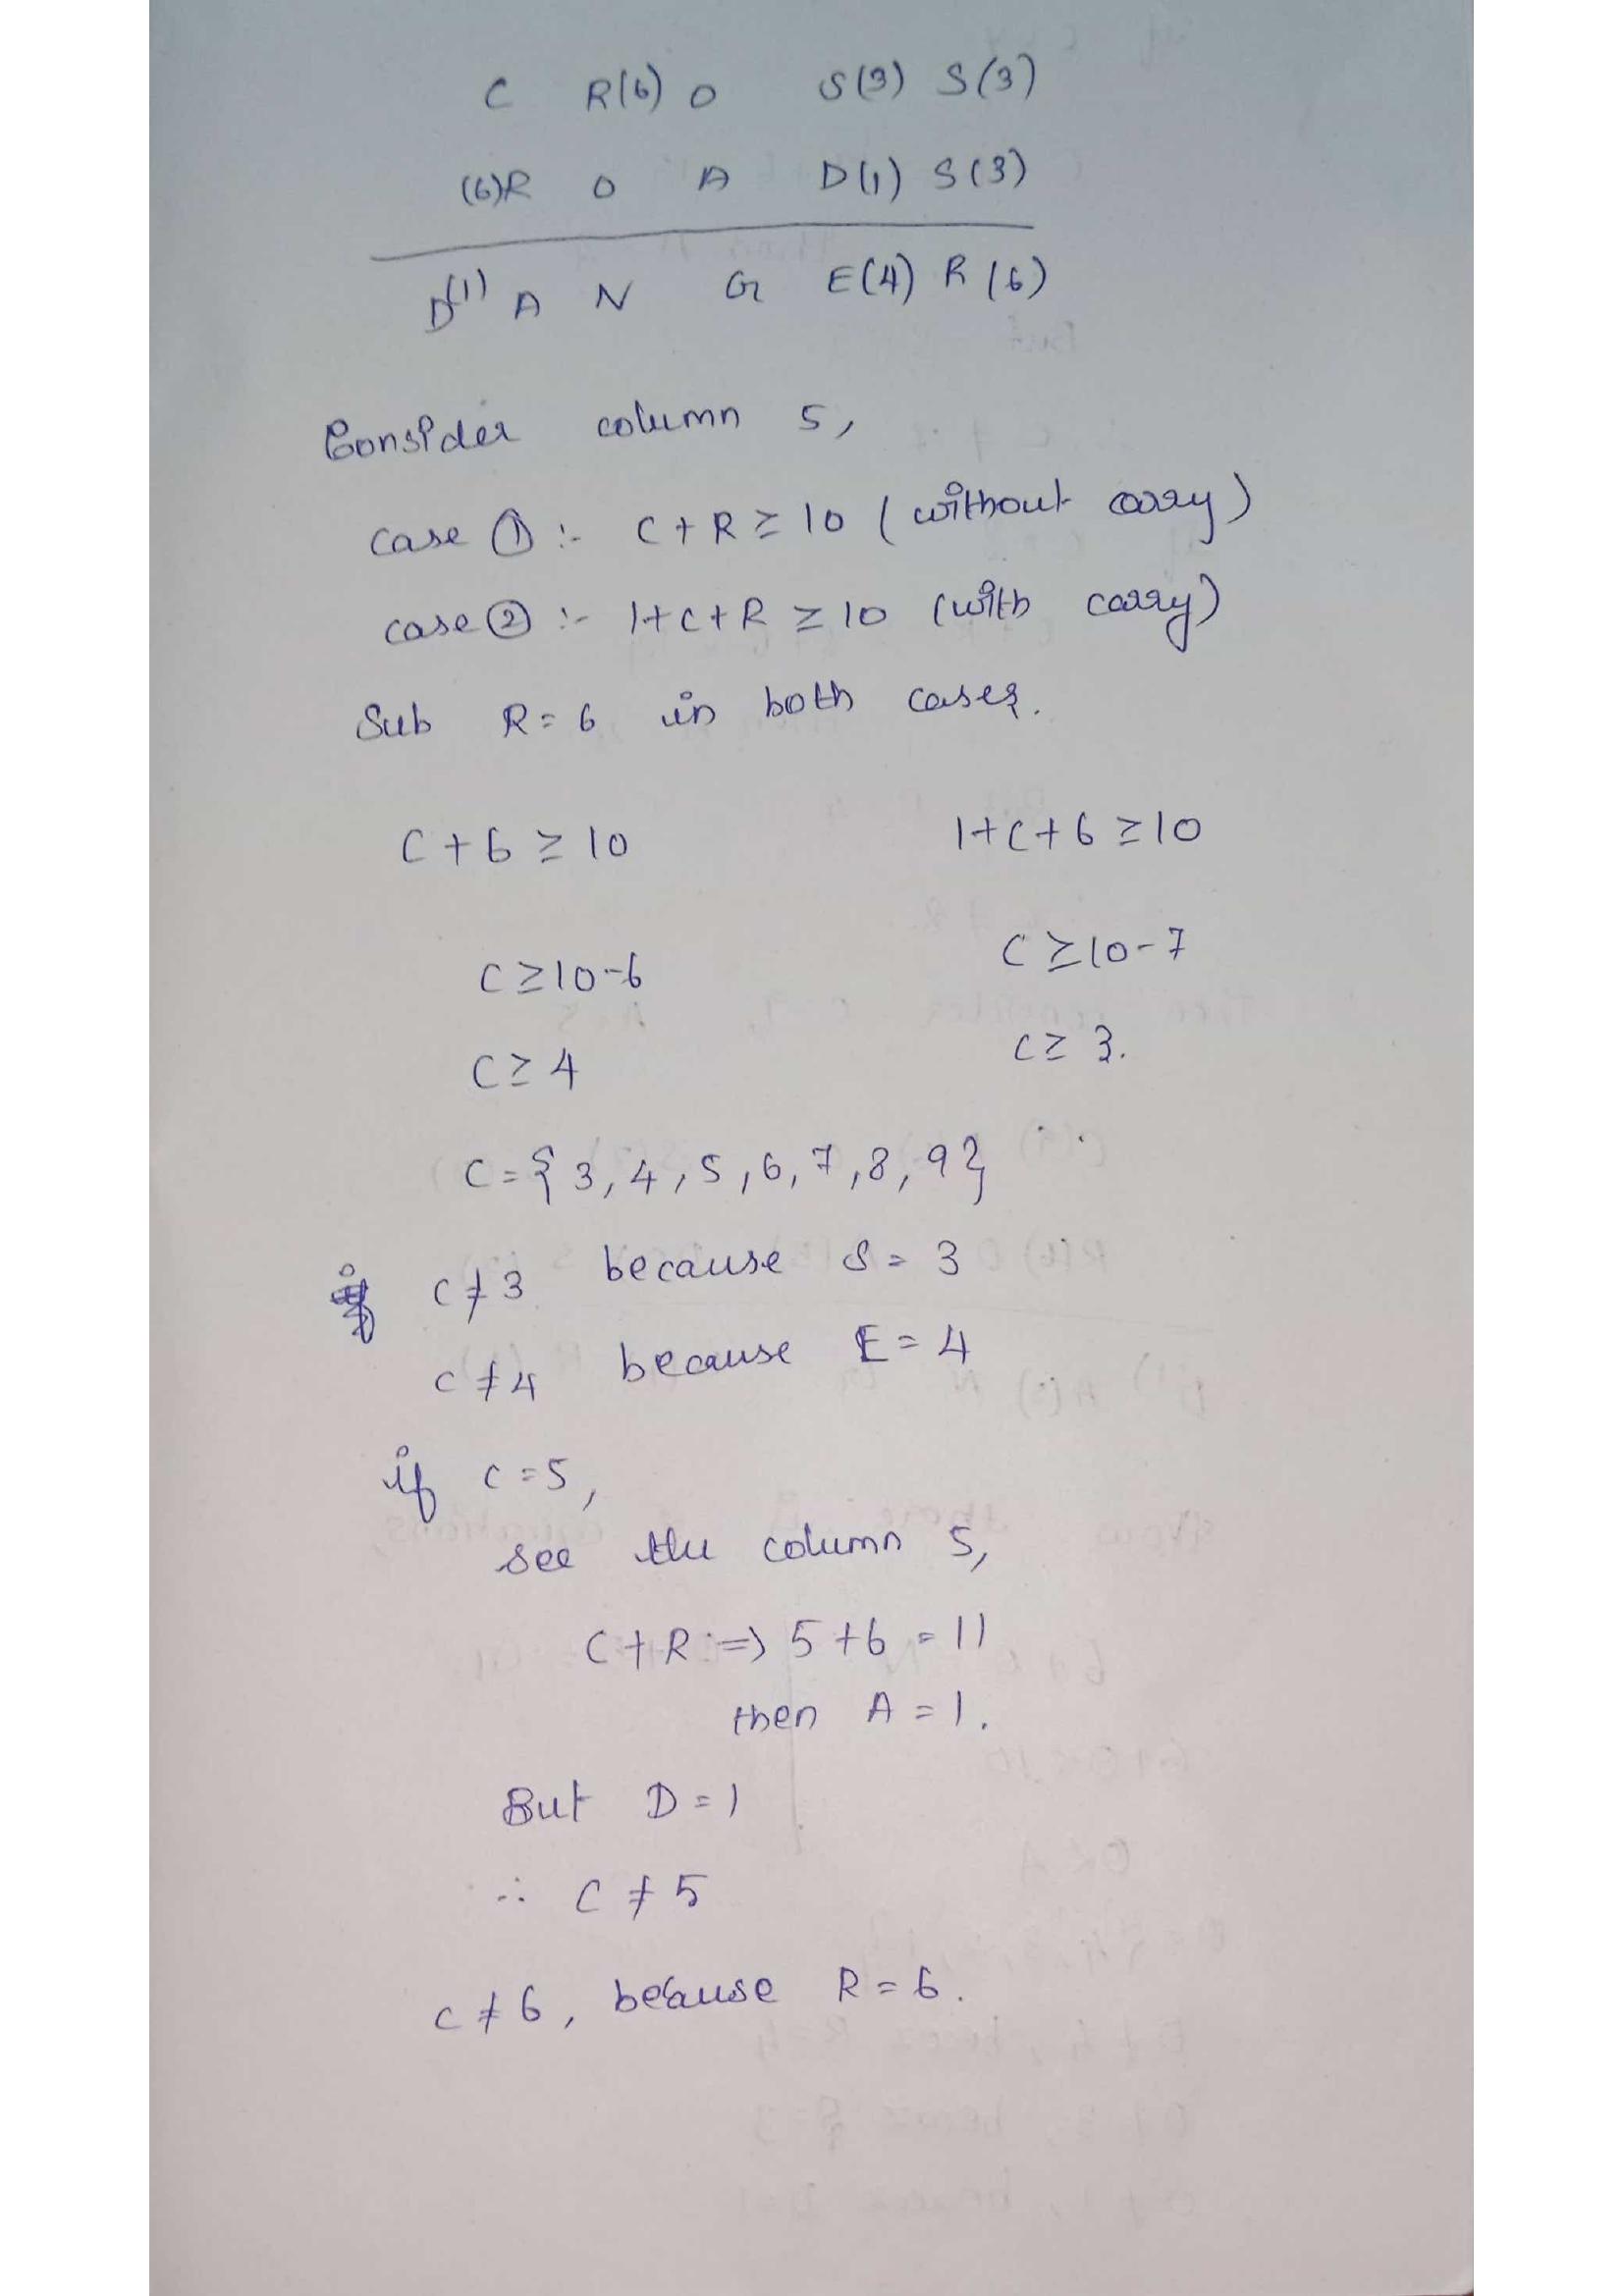 C R(6) O S(3) S(3)
(6)R O A D(1) S(3)
D(1) A N G E(4) R (6)
Consider column 5,
case ① :- C + R ≥ 10 (without carry)
case ② :- 1+C+R ≥ 10 (with carry)
Sub R = 6 in both cases.
C + 6 ≥ 10 1+C+6 ≥ 10
C ≥ 10-6 C ≥ 10-7
C ≥ 4 C ≥ 3.
C = {3, 4, 5, 6, 7, 8, 9}
if C ≠ 3 because S = 3
C ≠ 4 because E = 4
if C = 5,
see the column 5,
C + R => 5 + 6 = 11
then A = 1.
But D = 1
∴ C ≠ 5
C ≠ 6, because R = 6.